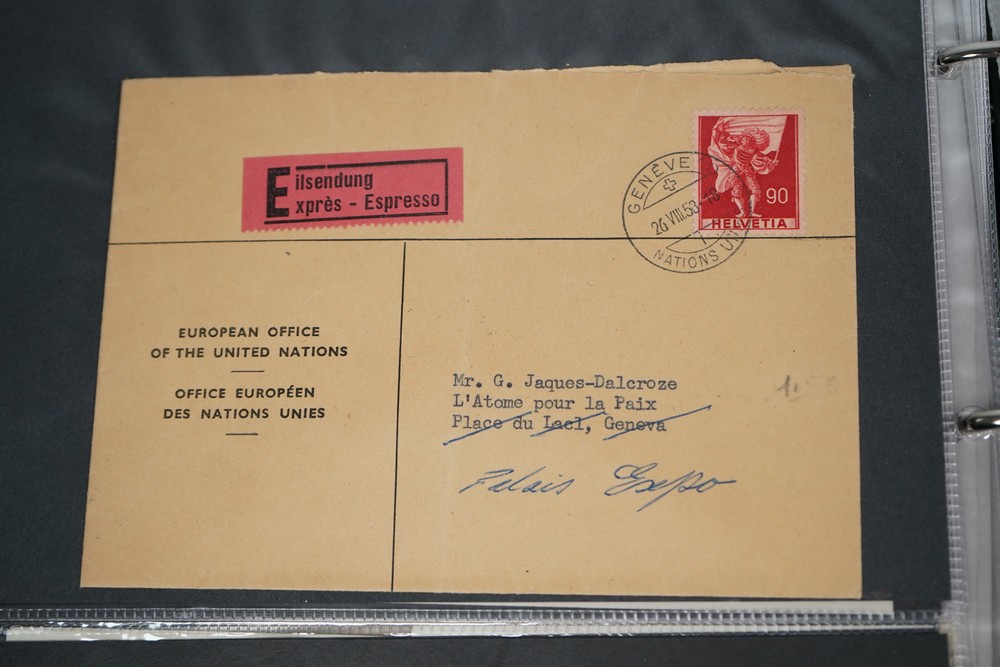 Eilsendung
Exprès - Espresso
GENÈVE
26.VIII.58.-18
1
NATIONS UN
90
HELVETIA
EUROPEAN OFFICE
OF THE UNITED NATIONS
OFFICE EUROPÉEN
DES NATIONS UNIES
Mr. G. Jaques-Dalcroze
L'Atome pour la Paix
Place du Lac1, Geneva
Palais Expo